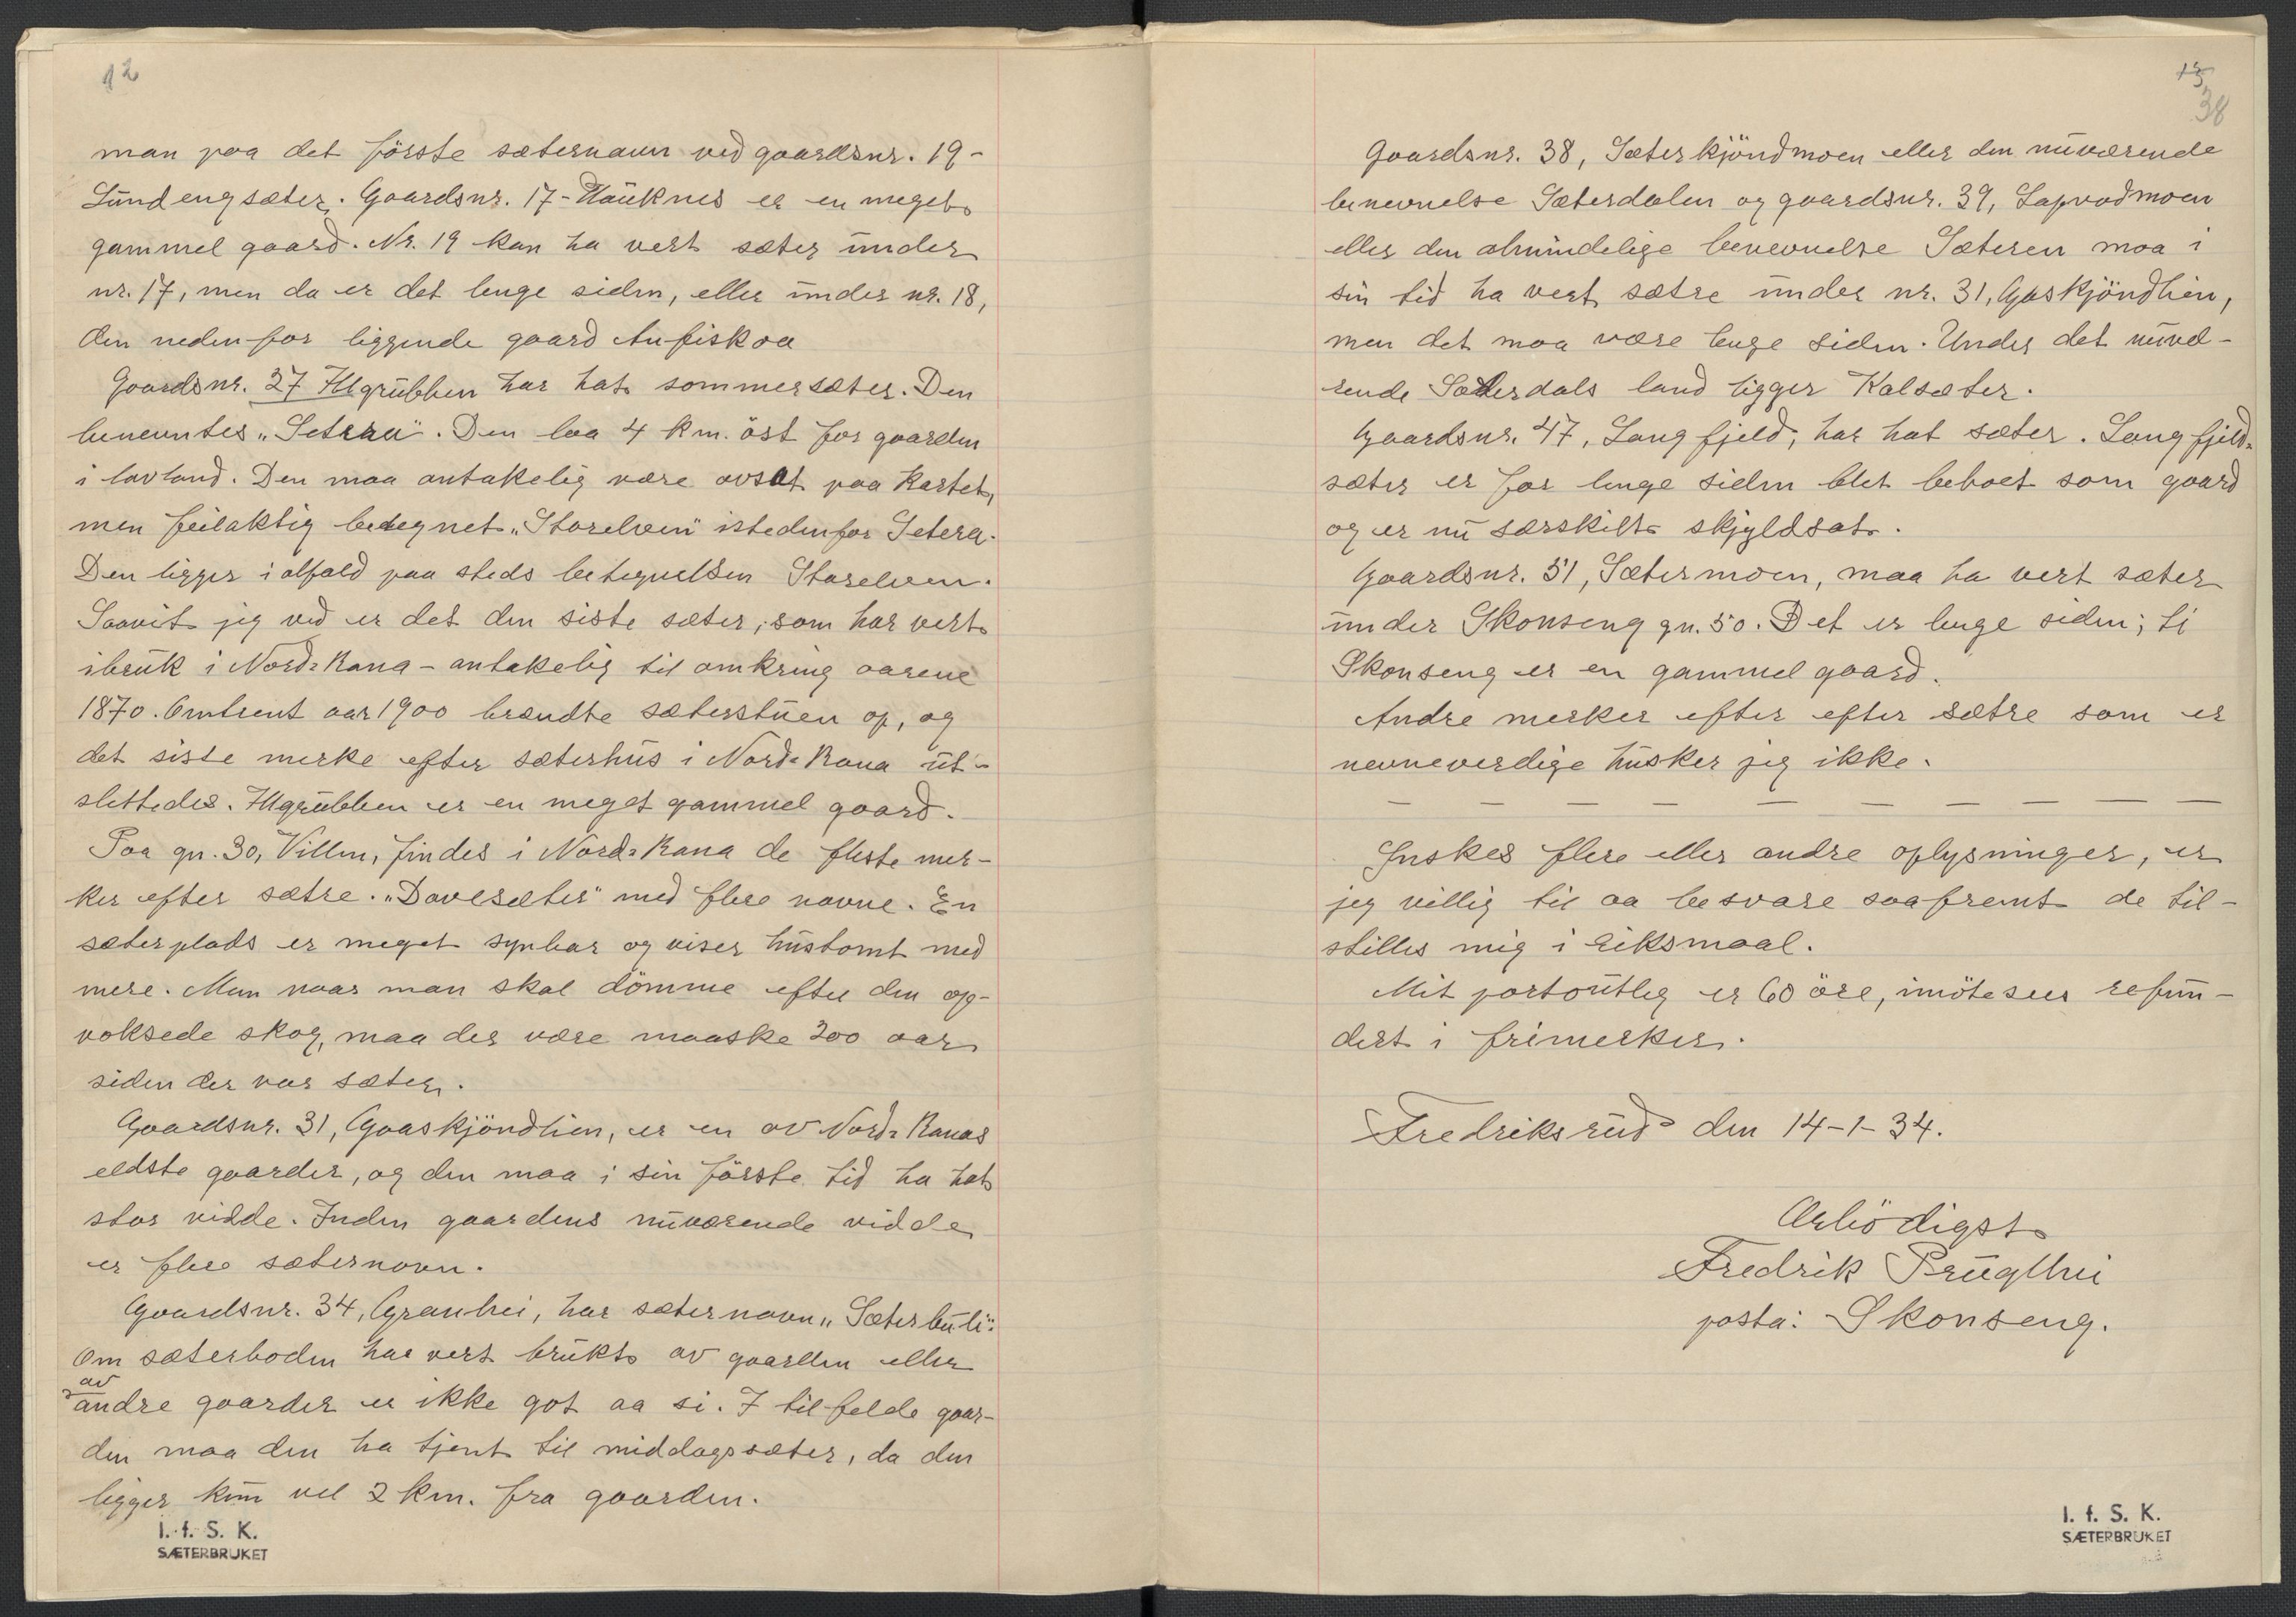 12
man paa det förste sæternavn ved gaardsnr. 19-
Lundengsæter. Gaardsnr. 17-Hauknes er en meget
gammel gaard. Nr. 19 kan ha vert sæter under
nr. 17, men da er det lenge siden, eller under nr. 18,
den nedenfor liggende gaard Aufiskaa
Gaardsnr. 27 Illgrubben har hat sommersæter. Den
benevntes „Setraa". Den laa 4 km. öst for gaarden
i lavland. Den maa antakelig være avsat paa kartet,
men feilaktig betegnet „Storelven" istedenfor Setera.
Den ligger i alfald paa steds betegnelsen Storelven.
Saavit jeg ved er det den siste sæter, som har vert
ibruk i Nord-Rana - antakelig til omkring aarene
1870. Omtrent aar 1900 brændte sæterstuen op, og
det siste merke efter sæterhus i Nord-Rana ut-
slettedes. Illgrubben er en meget gammel gaard.
Paa gn. 30, Villen, findes i Nord-Rana de fleste mer-
ker efter sætre. „Davesæter" med flere navne. En
sæterplads er meget synbar og viser hustomt med
mere. Men naar man skal dömme efter den op-
voksede skog, maa der være maaske 200 aar
siden der var sæter.
Gaardsnr. 31, Gaaskjöndlien, er en av Nord-Ranas
eldste gaarder, og den maa i sin förste tid ha hat
stor vidde. Inden gaardens nuværende vidde
er flere sæternavn.
Gaardsnr. 34, Granhei, har sæternavn „Sæterbuti".
Om sæterboden har vert brukt av gaarden eller
av
andre gaarder er ikke got aa si. I tilfelde gaar-
den maa den ha tjent til middagssæter, da den
ligger kun vel 2 km. fra gaarden.
I. f. S. K.
SÆTERBRUKET
13
38
Gaardsnr. 38, Sæterkjöndmoen eller den nuværende
benevnelse Sæterdalen og gaardsnr. 39, Lapvadmoen
eller den almindelige benevnelse Sæteren maa i
sin tid ha vert sætre under nr. 31, Gaskjöndlien,
men det maa være lenge siden. Under det nuvæ-
rende Sæterdals land ligger Kalsæter.
Gaardsnr. 47, Langfjeld, har hat sæter. Langfjeld-
sæter er for lenge siden blet beboet som gaard
og er nu særskilt skjyldsat.
Gaardsnr. 51, Sætermoen, maa ha vert sæter
under Skonseng gn. 50. Det er lenge siden; ti
Skonseng er en gammel gaard.
Andre merker efter efter sætre som er
nevneverdige husker jeg ikke.
— — — — — — — — — —
Ynskes flere eller andre oplysninger, er
jeg villig til aa besvare saafremt de til-
stilles mig i riksmaal.
Mit portoutleg er 60 öre, imöteseer refun-
dert i frimerker.
Fredriksrud den 14-1-34.
Ærbödigst
Fredrik Prüglhei
posta: Skonseng.
I. f. S. K.
SÆTERBRUKET